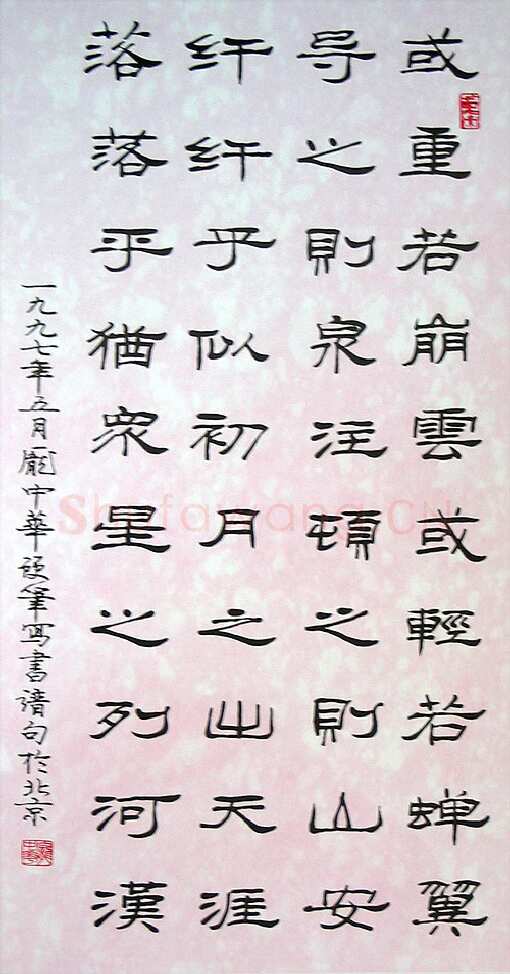 或重若崩雲或輕若蝉翼
导之則泉注頓之則山安
纤纤乎似初月之出天涯
落落乎猶眾星之列河漢
一九九七年五月龐中華硬筆寫書譜句於北京